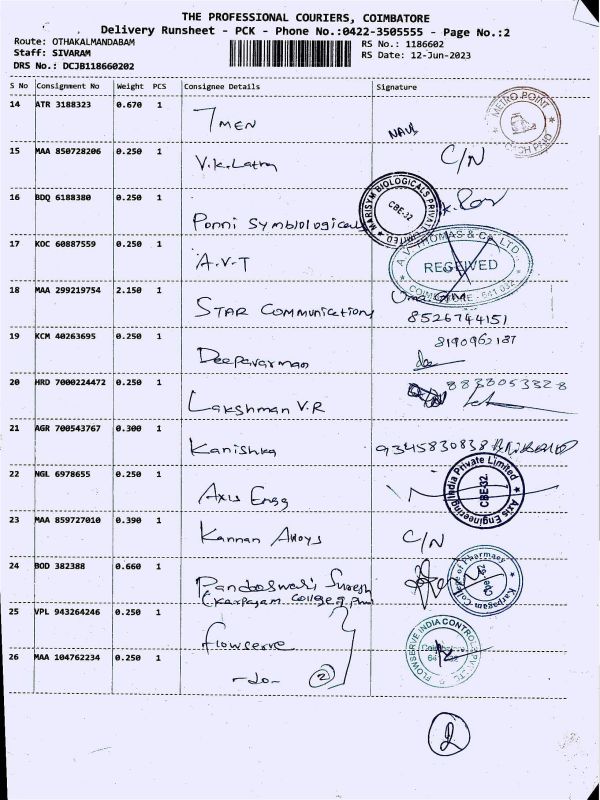 THE PROFESSIONAL COURIERS, COIMBATORE
Delivery Runsheet - PCK - Phone No.:0422-3505555 - Page No.:2
Route: OTHAKALMANDABAM
RS No.: 1186602
Staff: SIVARAM
RS Date: 12-Jun-2023
DRS No.: DCJB118660202
S No Consignment No Weight PCS Consignee Details Signature
14 ATR 3188323 0.670 1 7 MEN
METRO POINT
15 MAA 850728206 0.250 1 V.K. Latha C/N
16 BDQ 6188380 0.250 1 Ponni Symbiological
MARISYM BIOLOGICALS PRIVATE LIMITED CBE-32
17 KOC 60887559 0.250 1 A.V.T
A.V. THOMAS & CO. LTD
RECEIVED
COIMBATORE - 641 032
18 MAA 299219754 2.150 1 STAR Communications
8526744151
19 KCM 40263695 0.250 1 Deepavarman
8190962137
20 HRD 7000224472 0.250 1 Lakshman V.R
8838053328
21 AGR 700543767 0.300 1 Kanishka 9345830838
22 NGL 6978655 0.250 1 Axis Engg
Axis Engineering India Private Limited CBE-32
23 MAA 859727010 0.390 1 Kannan Alloys C/N
24 BOD 382388 0.660 1 Suresh
(Karpagam College of
Karpagam College of Pharmacy
25 VPL 943264246 0.250 1 Flowserve
FLOWSERVE INDIA CONTROLS PVT. LTD
26 MAA 104762234 0.250 1 -do- 2
2